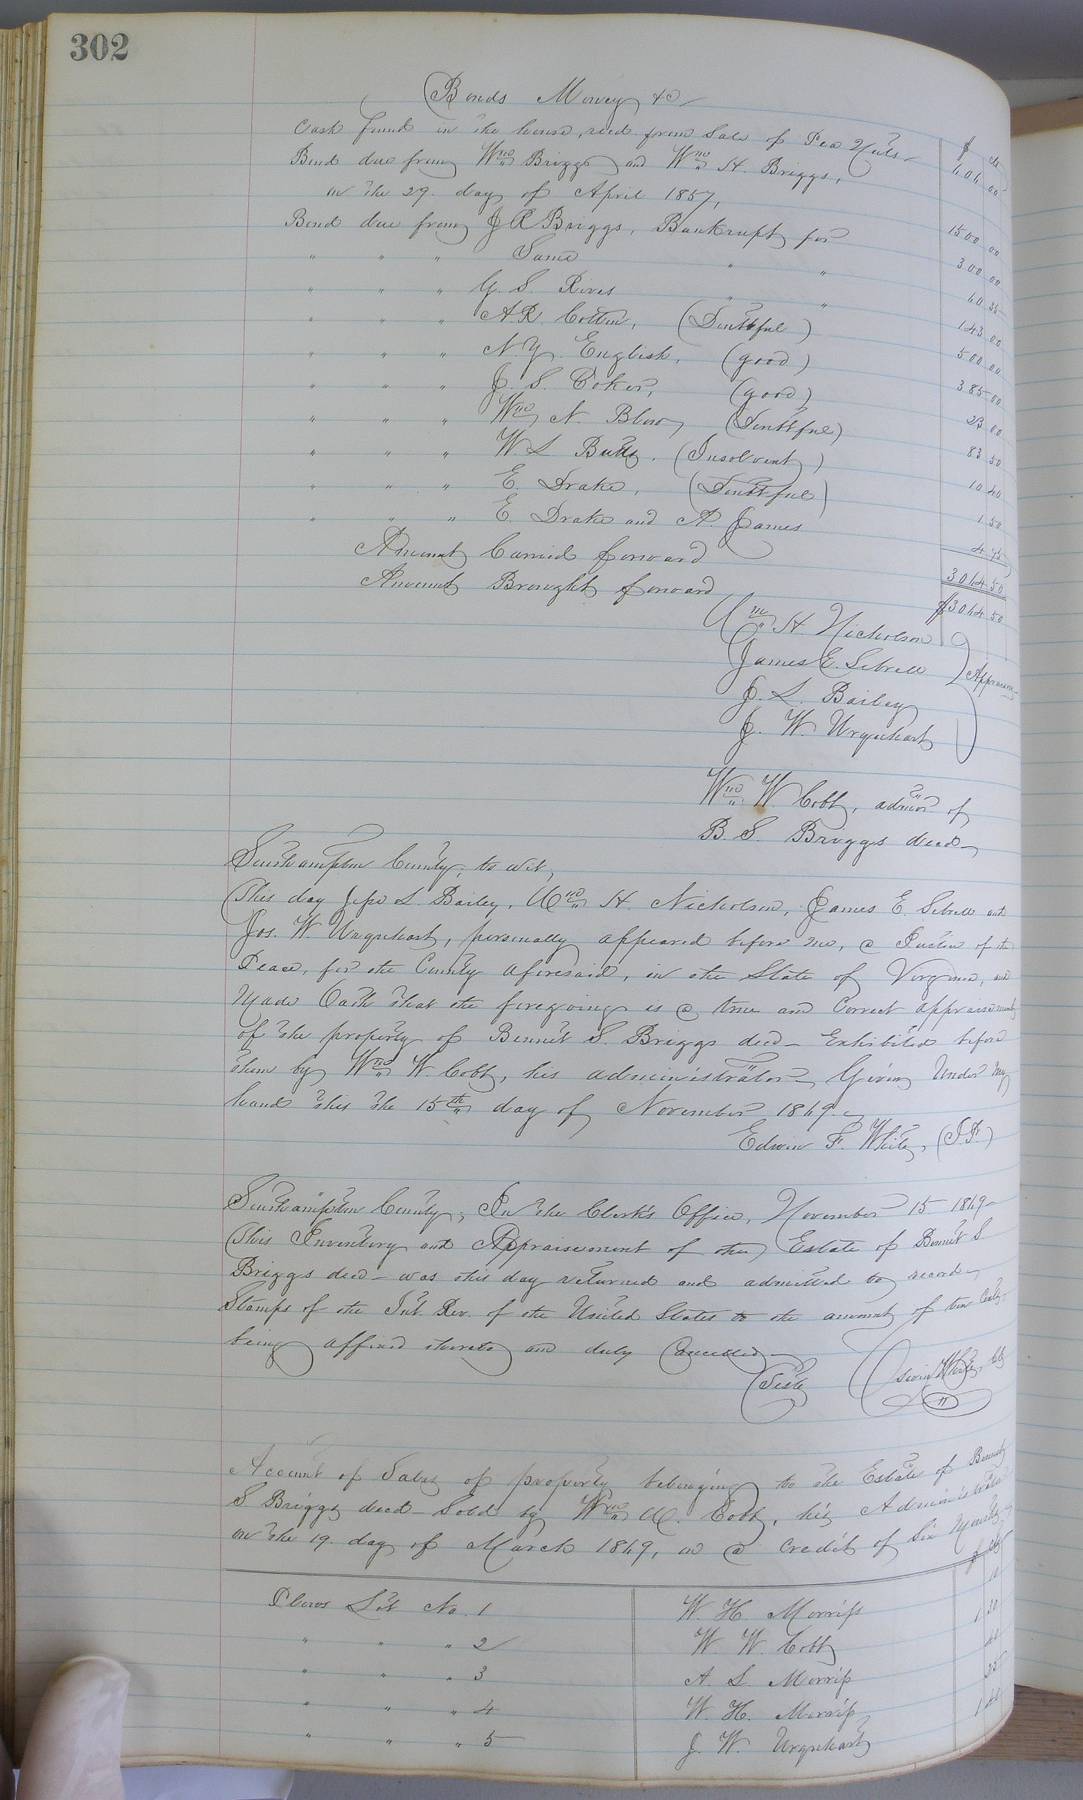 302
Bonds Money &c
$ cts
Cash found in the house, recd from Sale of Pea Nuts 
Bond due from Wm Briggs and Wm H. Briggs,
on the 29. day of April 1857, 1500 00
Bond due from J R Briggs, Bankrupt for 300 00
" " " Same " "
" " " G. S. Rives " " 143 00
" " " A. R. Cotten, (Doubtful) 500 00
" " " N Y. English, (good) 385 00
" " " J. S. Coker, (good)
" " " Wm N. Blow, (Doubtful) 83 50
" " " W L Butts, (Insolvent) 10 40
" " " E. Drake, (Doubtful) 1 50
" " " E. Drake and A. James 4 75
Amount Carried forward 3064 50
Amount Brought forward $3064 50
Wm H. Nicholson
James E. Sebrell
J. L. Bailey
J. W. Urquhart
Appraisers
Wm W. Cobb, admor of
B. S. Briggs decd
Southampton County, to wit,
This day L. Bailey, Wm H. Nicholson, James E. Sebrell and
Jos. W. Urquhart, personally appeared before me, a Justice of the
Peace, for the County aforesaid, in the State of Virginia, and
Made Oath that the foregoing is a true and Correct appraisement
of the property of Bennet S. Briggs decd Exhibited before
them by Wm W. Cobb, his administrator Given Under my
hand this the 15th day of November 1869.
Edwin F. White, (J.P.)
Southampton County, In the Clerk's Office, November 15 1869
This Inventory and Appraisement of the Estate of Bennet S
Briggs decd was this day returned and admitted to record
Stamps of the Int. Rev. of the United States to the amount of ten Cents
being affixed thereto and duly Cancelled
Teste White, Clk
Account of Sales of property belonging to the Estate of Bennet
S Briggs decd Sold by Wm W. Cobb, his Administrator
on the 19. day of March 1869, on a Credit of Six Months
$ cts
Plows Lot No. 1 W. H. Morriss
" " " 2 W. W. Cobb
" " " 3 A. L. Morriss
" " " 4 W. H. Morriss
" " " 5 J. W. Urquhart